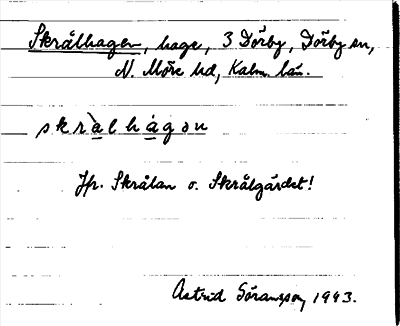 Skrålhagen, hage, 3 Dörby, Dörby sn,
N. Möre hd, Kalm. län.
skràlhágən
Jfr. Skrålan o. Skrålgärdet!
Astrid Göransson, 1943.